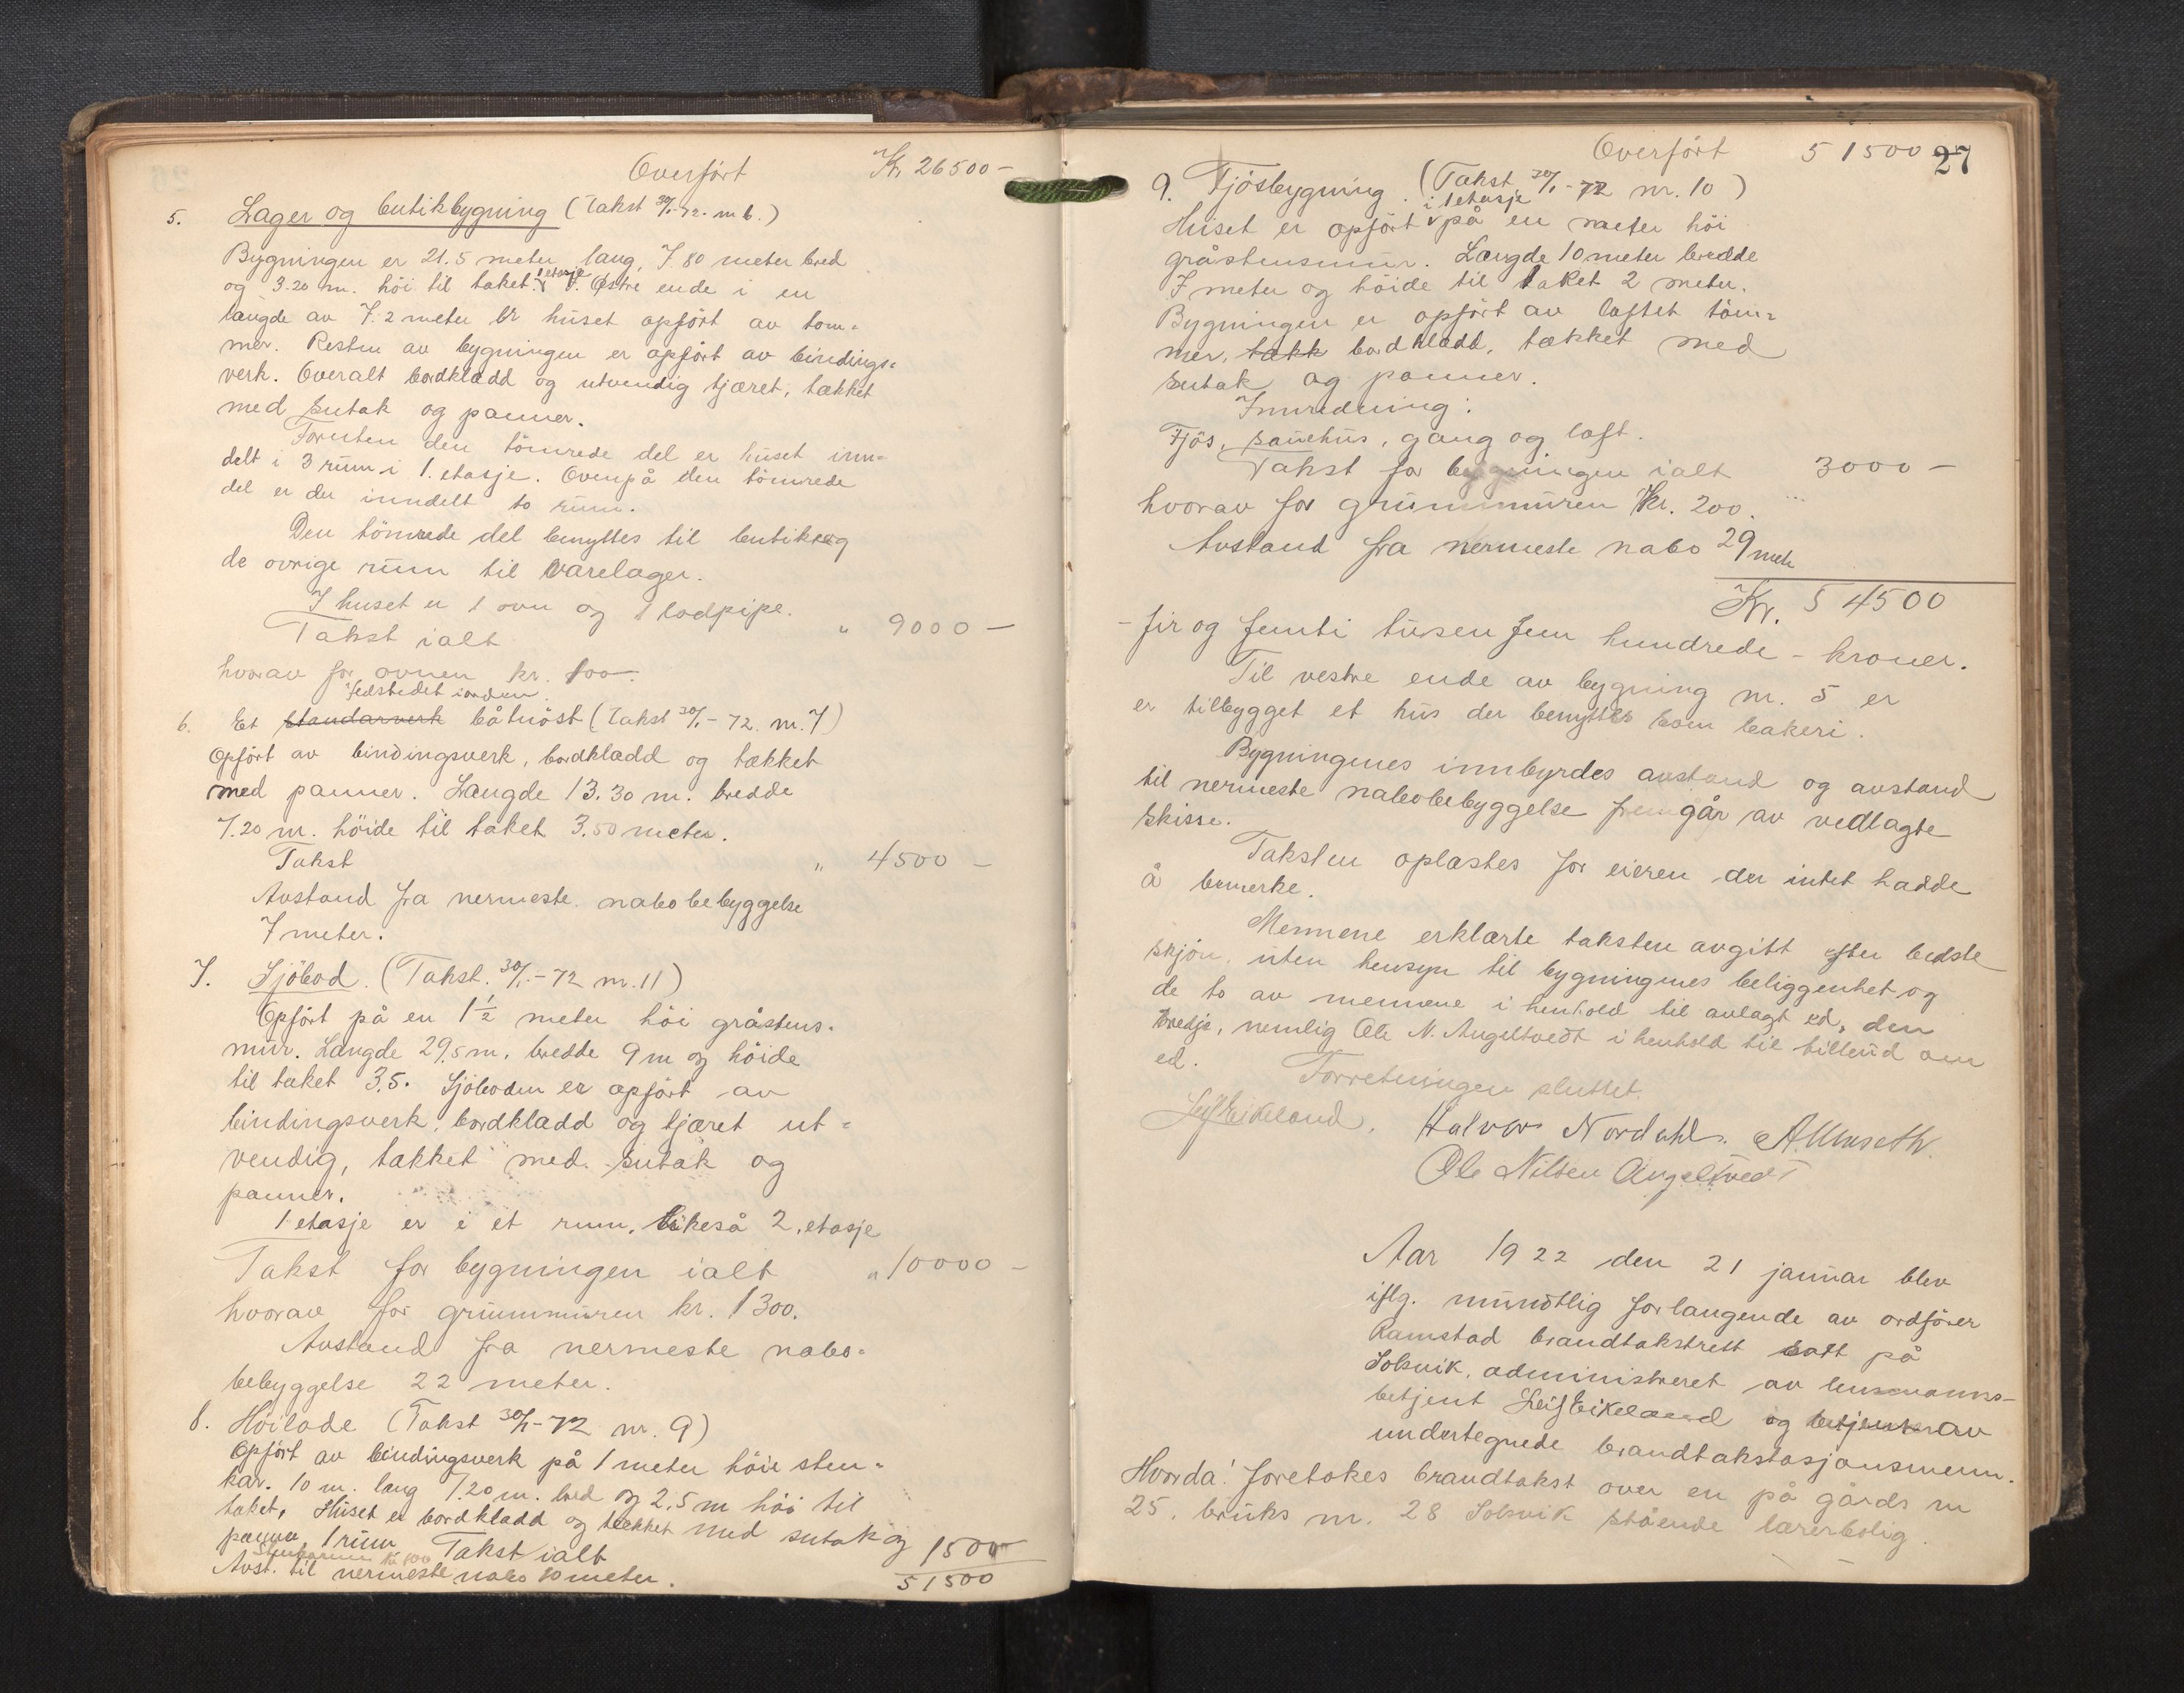 Overført Kr 26500 –
5. Lager og butikbygning (Takst 30/1-72. nr 6.)
Bygningen er 21.5 meter lang, 7.80 meter bred
og 3.20 m. höi til taket. 1 etasje I Östre ende i en
længde av 7.2 meter er huset opfört av töm-
mer. Resten av bygningen er opfört av bindings-
verk. Overalt bordklædd og utvendig tjæret, tækket
med sutak og panner.
Foruten den tömrede del er huset inn-
delt i 3 rum i 1. etasje. Ovenpå den tömrede
del er der inndelt to rum.
Den tömrede del benyttes til butik og
de ovrige rum til varelager.
I huset er 1 ovn og 1 lodpipe.
Takst ialt " 9000 –
hvorav for ovnen kr. 100 –.
Jedstedet i anden
6. Et standarverk båtnöst (Takst 30/1 - 72. nr. 7)
Opfört av bindingsverk, bordklædd og tækket
med panner. Længde 13.30 m. bredde
7.20 m. höide til taket 3.50 meter.
Takst " 4500 –
Avstand fra nermeste nabobebyggelse
7 meter.
7. Sjöbod. (Takst. 30/1 - 72 nr. 11)
Opfört på en 1 1/2 meter höi gråstens-
mur. Længde 29,5 m, bredde 9 m og höide
til taket 3,5. Sjöboden er opfört av
bindingsverk, bordklædd og tjæret ut-
vendig, tækket med sutak og
panner.
1 etasje er i et rum, likeså 2. etasje
Takst for bygningen ialt " 10000 –
hvorav for grunnmuren kr. 1300.
Avstand fra nermeste nabo-
bebyggelse 22 meter.
8. Höilade (Takst 30/1 - 72 nr. 9)
Opfört av bindingsverk på 1 meter höie sten-
kar. 10 m. lang 7.20 m. bred og 2,5 m höi til
taket, Huset er bordklædd og tækket med sutak og
panner 1 rum Takst ialt 1500
Stenkarene kr 100
Avst. til nermeste nabo 10 meter. 51500
Overfört 51500 27
9. Fjösbygning. (Takst. 30/1 - 72 nr. 10)
i 1 etasje
Huset er opfört på en meter höi
gråstensmur. Længde 10 meter bredde
7 meter og höide til taket 2 meter.
Bygningen er opfört av laftet töm-
mer, takk bordklædd, tækket med
sutak og panner.
Innredning:
Fjös, sauehus, gang og loft.
Takst for bygningen ialt 3000 –
hvorav for grunnmuren kr. 200.
Avstand fra nermeste nabo 29 meter
Kr. 54500
– fir og femti tusen fem hundrede – kroner.
Til vestre ende av bygning nr. 5 er
er tilbygget et hus der benyttes som bakeri.
Bygningenes innbyrdes avstand og avstand
til nermeste nabobebyggelse fremgår av vedlagte
skisse.
Taksten oplæstes for eieren der intet hadde
å bemerke.
Mennene erklærte taksten avgitt efter bedste
skjön, uten hensyn til bygningenes beliggenhet og
de to av mennene i henhold til avlagt ed, den
tredje, nemlig Ole N. Angeltvedt i henhold til tilbud om
ed. Forretningen sluttet.
Leif Eikeland. Halvor Nordahl. A. Unseth.
Ole Nilsen Angeltvedt
Aar 1922 den 21 januar blev
iflg. mundtlig forlangende av ordförer
Ramstad brandtakstrett satt på
Solsvik, administreret av lensmanns-
betjent Leif Eikeland og betjent av
undertegnede brandtakstasjonsmenn.
Hvorda! foretokes brandtakst over en på gårds nr
25, bruks nr. 28 Solsvik stående lærerbolig.